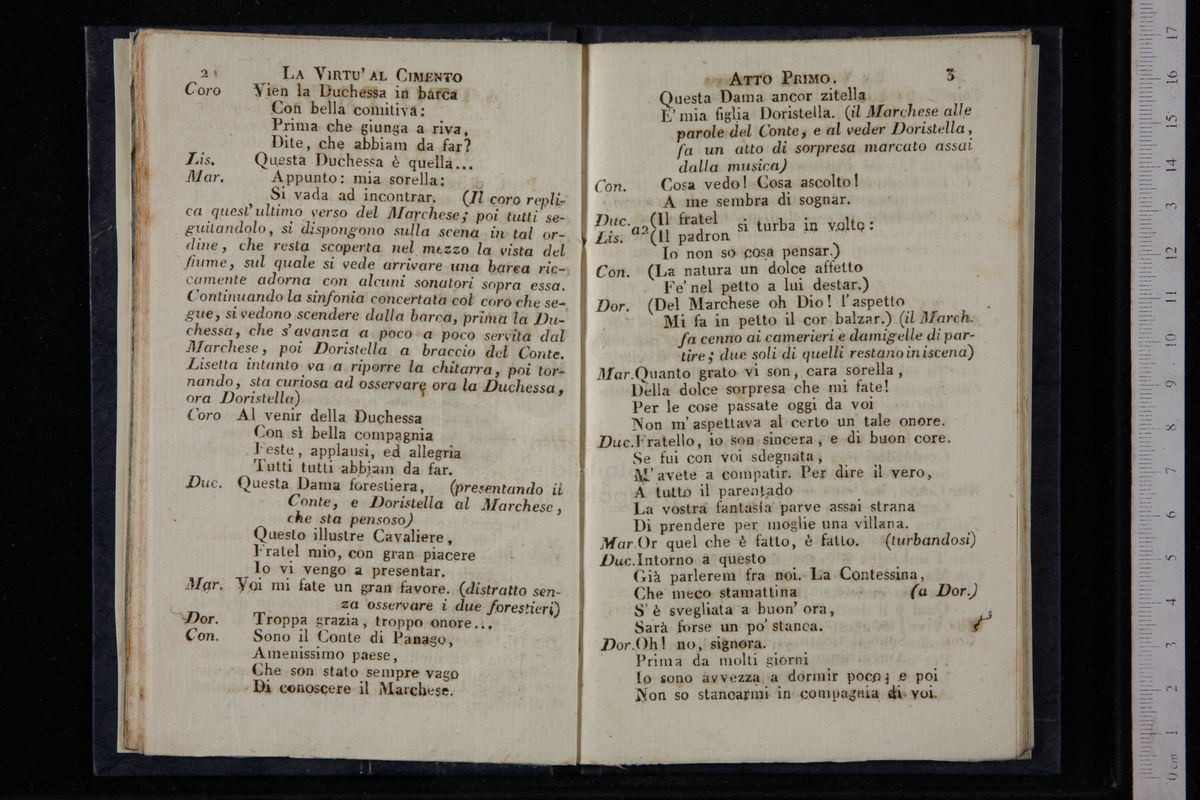 2 LA VIRTU' AL CIMENTO
Coro Vien la Duchessa in barca
Con bella comitiva:
Prima che giunga a riva,
Dite, che abbiam da far?
Lis. Questa Duchessa è quella...
Mar. Appunto: mia sorella:
Si vada ad incontrar. (Il coro repli-
ca quest'ultimo verso del Marchese; poi tutti se-
guitandolo, si dispongono sulla scena in tal or-
dine, che resta scoperta nel mezzo la vista del
fiume, sul quale si vede arrivare una barca ric-
camente adorna con alcuni sonatori sopra essa.
Continuando la sinfonia concertata col coro che se-
gue, si vedono scendere dalla barca, prima la Du-
chessa, che s'avanza a poco a poco servita dal
Marchese, poi Doristella a braccio del Conte.
Lisetta intanto va a riporre la chitarra, poi tor-
nando, sta curiosa ad osservare ora la Duchessa,
ora Doristella)
Coro Al venir della Duchessa
Con sì bella compagnia
Feste, applausi, ed allegria
Tutti tutti abbiam da far.
Duc. Questa Dama forestiera, (presentando il
Conte, e Doristella al Marchese,
che sta pensoso)
Questo illustre Cavaliere,
Fratel mio, con gran piacere
Io vi vengo a presentar.
Mar. Voi mi fate un gran favore. (distratto sen-
za osservare i due forestieri)
Dor. Troppa grazia, troppo onore...
Con. Sono il Conte di Panago,
Amenissimo paese,
Che son stato sempre vago
Di conoscere il Marchese.
ATTO PRIMO. 3
Questa Dama ancor zitella
E' mia figlia Doristella. (il Marchese alle
parole del Conte, e al veder Doristella,
fa un atto di sorpresa marcato assai
dalla musica)
Con. Cosa vedo! Cosa ascolto!
A me sembra di sognar.
Duc. (Il fratel
Lis. a2 (Il padron si turba in volto:
Io non so cosa pensar.)
Con. (La natura un dolce affetto
Fe' nel petto a lui destar.)
Dor. (Del Marchese oh Dio! l'aspetto
Mi fa in petto il cor balzar.) (il March.
fa cenno ai camerieri e damigelle di par-
tire; due soli di quelli restano in iscena)
Mar. Quanto grato vi son, cara sorella,
Della dolce sorpresa che mi fate!
Per le cose passate oggi da voi
Non m'aspettava al certo un tale onore.
Duc. Fratello, io son sincera, e di buon core.
Se fui con voi sdegnata,
M'avete a compatir. Per dire il vero,
A tutto il parentado
La vostra fantasia parve assai strana
Di prendere per moglie una villana.
Mar. Or quel che è fatto, è fatto. (turbandosi)
Duc. Intorno a questo
Già parlerem fra noi. La Contessina,
Che meco stamattina (a Dor.)
S'è svegliata a buon' ora,
Sarà forse un po' stanca.
Dor. Oh! no, signora.
Prima da molti giorni
Io sono avvezza a dormir poco; e poi
Non so stancarmi in compagnia di voi.
0 cm 1 2 3 4 5 6 7 8 9 10 11 12 13 14 15 16 17